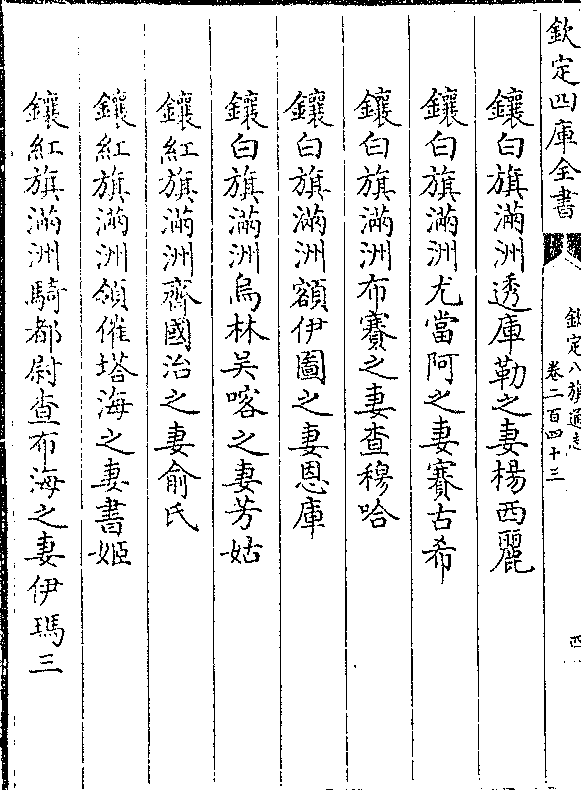 欽定四庫全書
欽定八旗通志
卷二百四十三
四
鑲白旗滿洲透庫勒之妻楊西麗
鑲白旗滿洲尤當阿之妻賽古希
鑲白旗滿洲布賽之妻查穆哈
鑲白旗滿洲額伊圖之妻恩庫
鑲白旗滿洲烏林吴喀之妻芳姑
鑲紅旗滿洲齊國治之妻俞氏
鑲紅旗滿洲領催塔海之妻書姬
鑲紅旗滿洲騎都尉查布海之妻伊瑪三